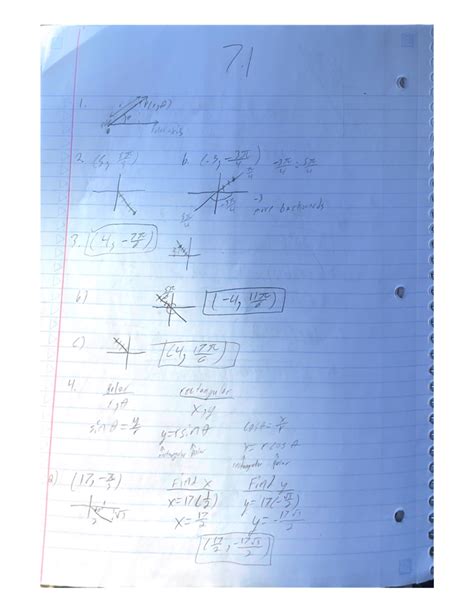 7.1
1. P(r,θ)
2. (5, 5π/3) b. (-3, -3π/4)
→ move backwards
3. (4, -7π/6)
b) (-4, 11π/6)
c) (4, 17π/6)
4. polar rectangular
r,θ x,y
sinθ=y/r y=r sinθ cosθ=x/r
x=r cosθ
rectangular polar rectangular polar
a) (17, -π/3) Find x Find y
x=17(1/2) y=17(-√3/2)
x=17/2 y=-17√3/2
(17/2, -17√3/2)